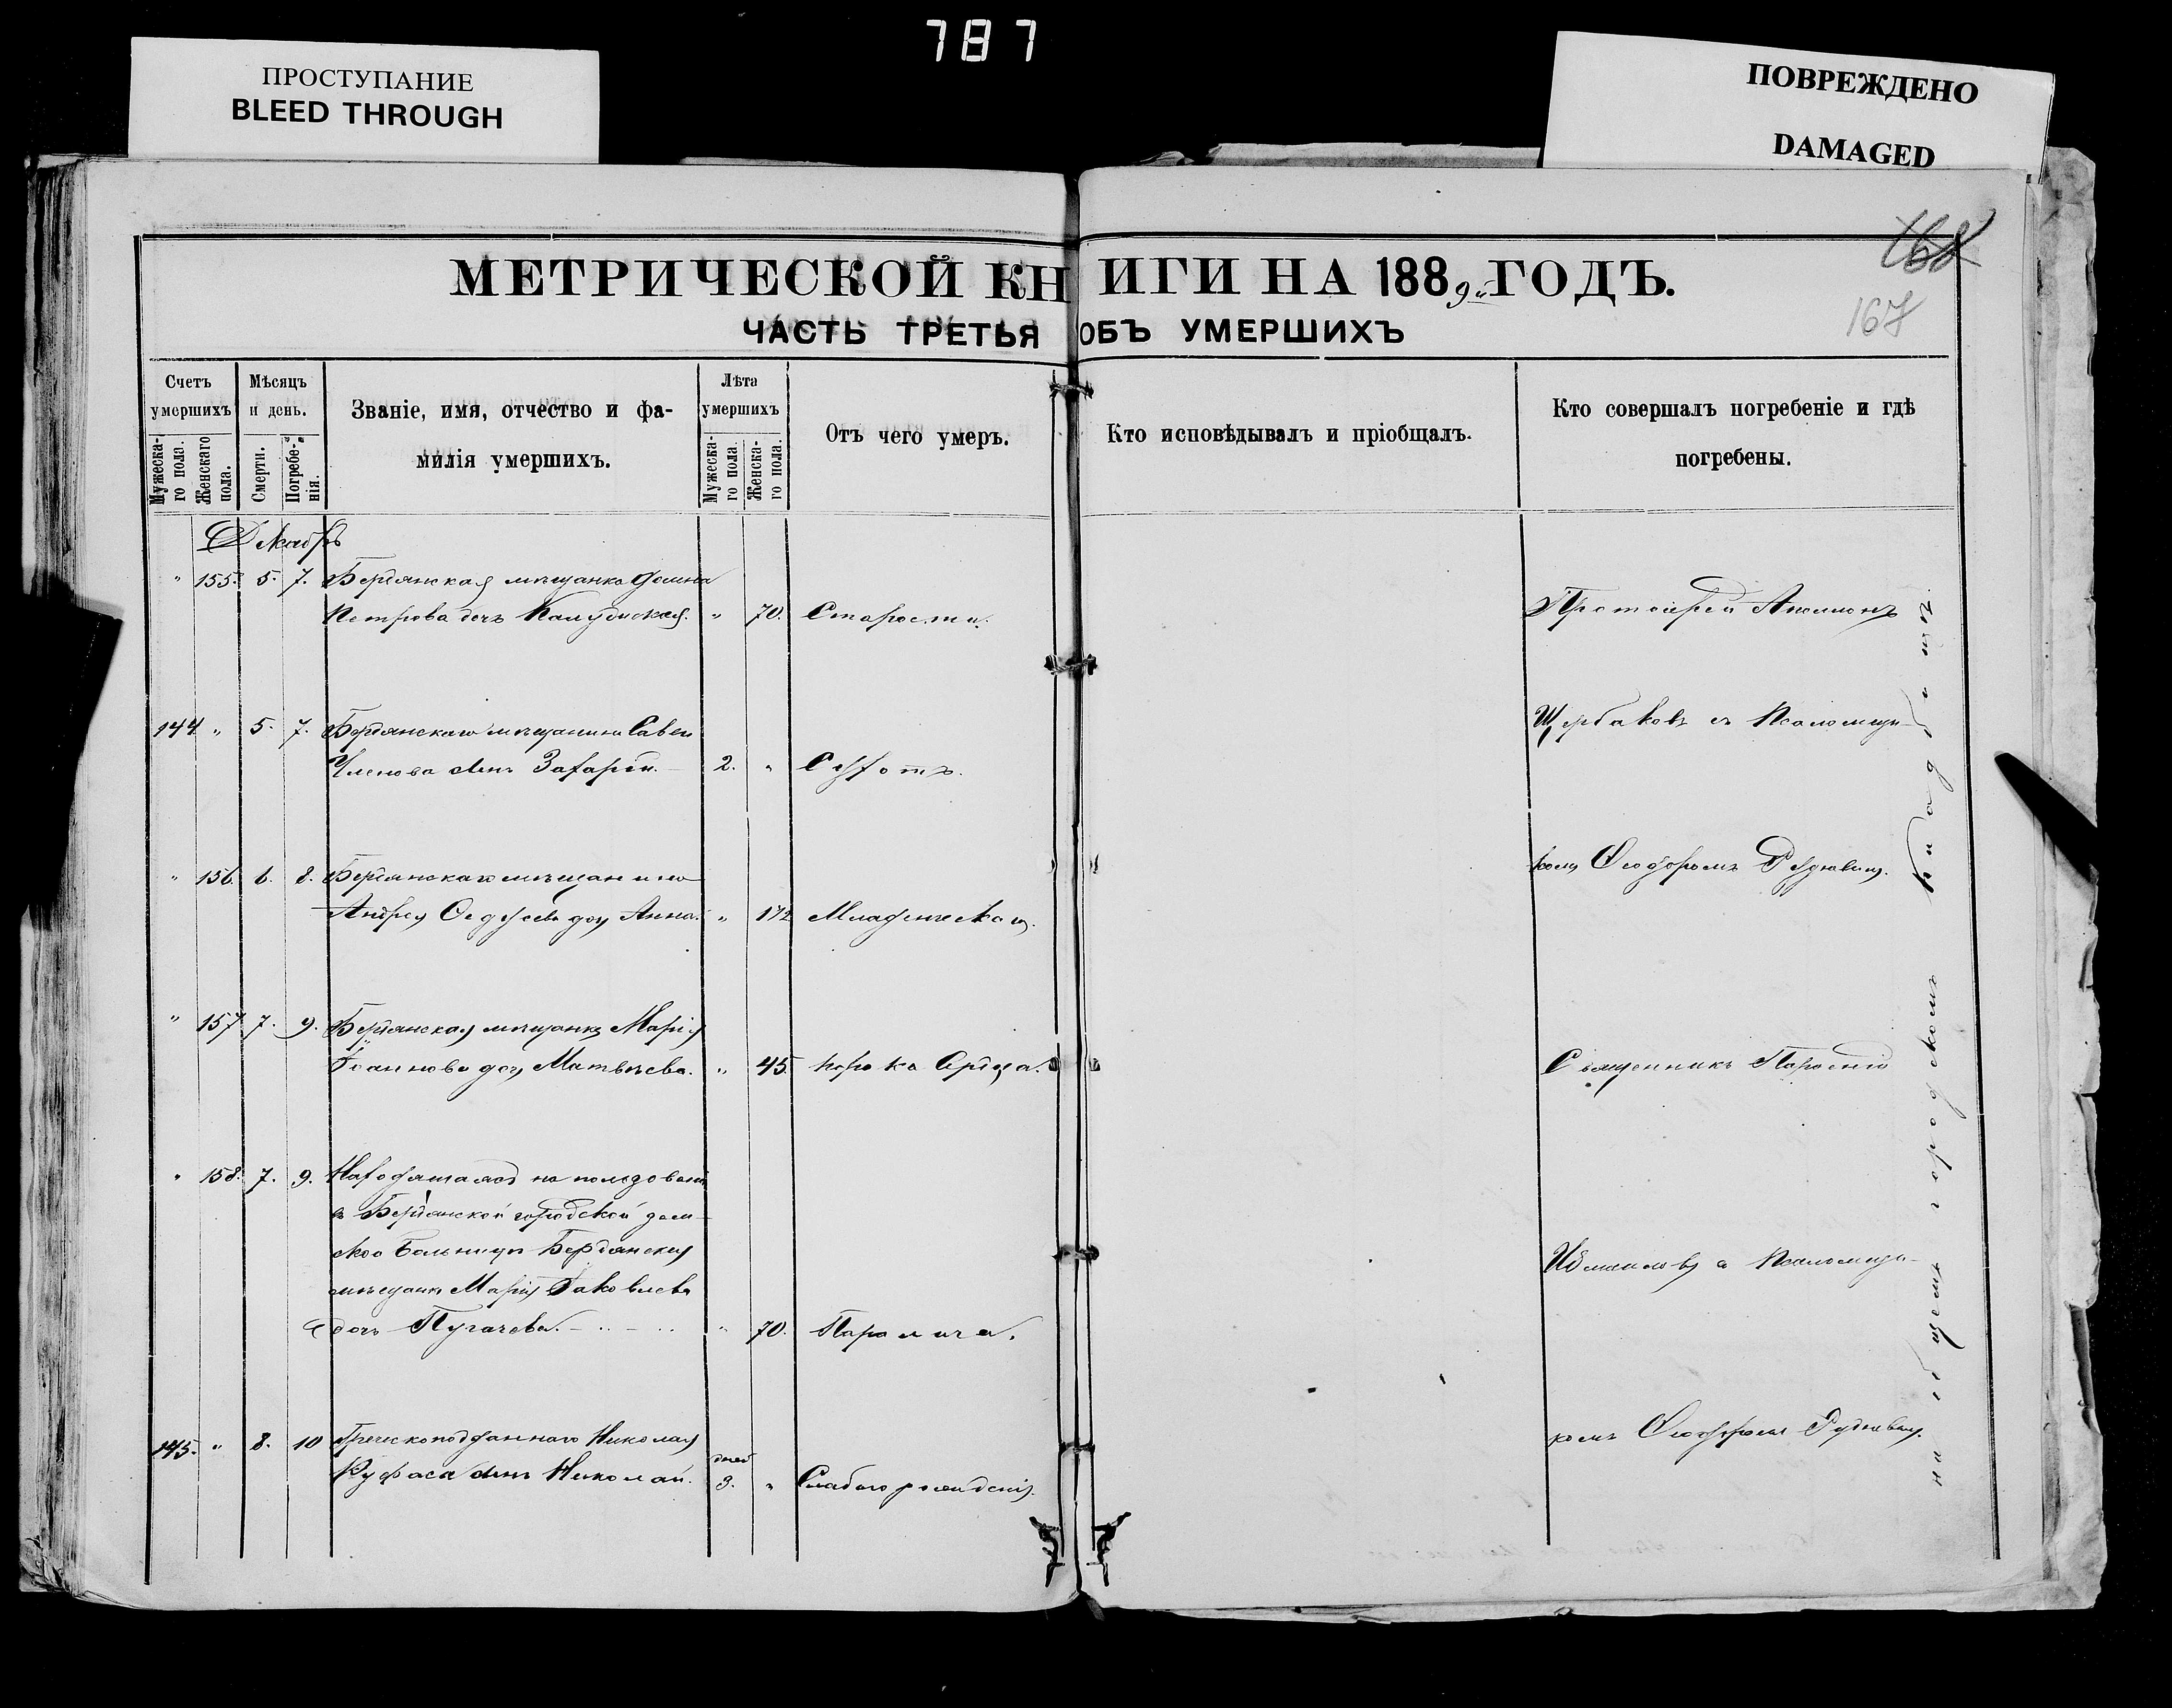 787
ПРОСТУПАНИЕ
BLEED THROUGH
ПОВРЕЖДЕНО
DAMAGED
168
167
МЕТРИЧЕСКОЙ КНИГИ НА 1889й ГОДЪ.
ЧАСТЬ ТРЕТЬЯ ОБЪ УМЕРШИХЪ
Счетъ умершихъ
Мужескаго пола.
Женскаго пола.
Мѣсяцъ и день.
Смерти.
Погребенія.
Званіе, имя, отчество и фа-
милія умершихъ.
Лѣта умершихъ
Мужескаго пола.
Женскаго пола.
Отъ чего умеръ.
Кто исповѣдывалъ и пріобщалъ.
Кто совершалъ погребеніе и гдѣ
погребены.
Декабрь
" 155. 5. 7. Бердянская мѣщанка
Петрова дочь " 70. Старости.
Протоіерей
144 " 5. 7. Бердянскаго мѣщанина Савы
сынъ Захарій. 2. "
Щербаковъ съ Псаломщи-
" 156. 6. 8. Бердянскаго мѣщанина
Андрея дочь Анна. " 1/2 Младенческой.
комъ Ѳеодоромъ
" 157 7. 9. Бердянская мѣщанка Марія
Іоаннова дочь Матвѣева. " 45. порока сердца.
Священникъ Парѳеній
" 158. 7. 9. Находящаяся на пользованіи
в Бердянской городской зем-
ской больницѣ Бердянская
мѣщанка Марія Іаковлева
дочь Пугачева. " 70. Паралича.
съ Псаломщи-
145. " 8. 10 Греческоподданнаго Николая
сынъ Николай. дней 3. " Слабаго рожденія.
комъ Ѳеодоромъ
на общемъ городскомъ кладбищѣ.